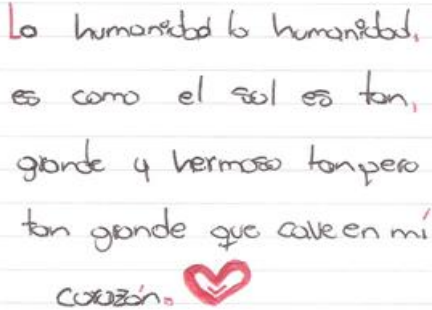 La humanidad la humanidad,
es como el sol es tan,
grande y hermoso tanpero
tan grande que cave en mí
corazón.